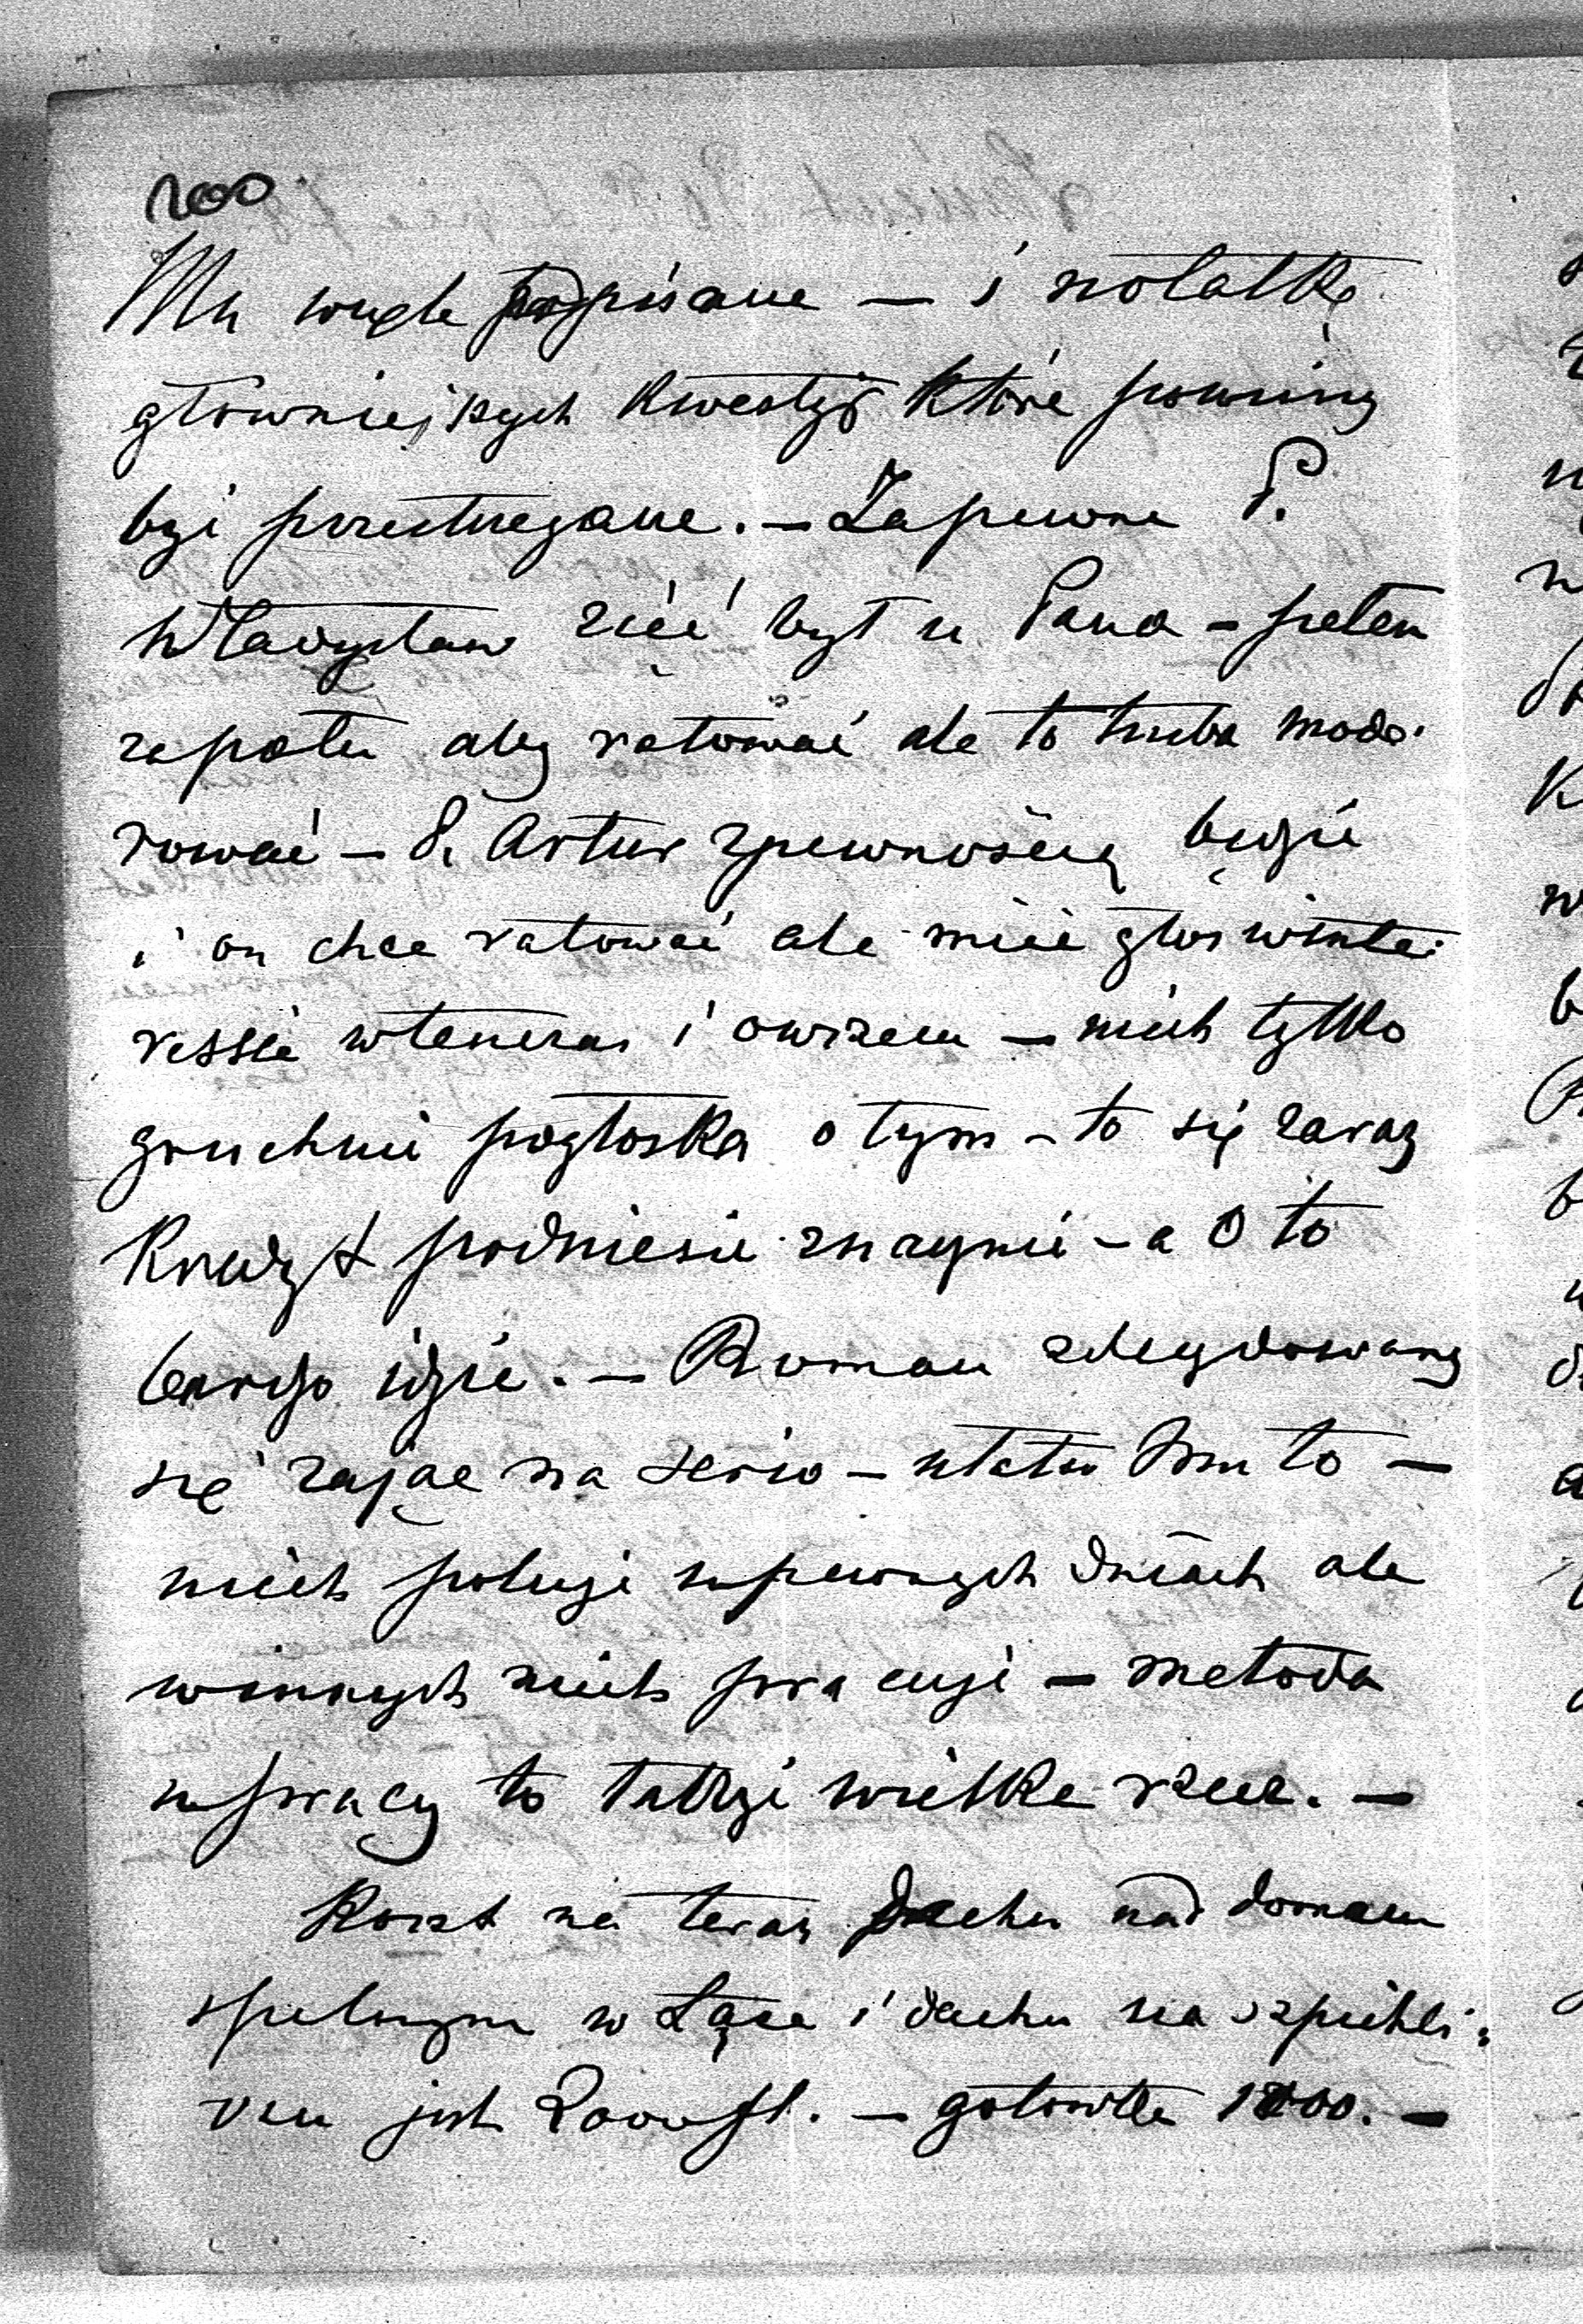 200
Mu podpisane — i notatkę
główniejszych kwestyj które powinny
być przestrzegane. — Zapewne P.
Władysław zięć był u Pana — pełen
zapału aby ratować ale to trzeba mode-
rować — P. Artur zpewnością będzie
i on chce ratować ale mieć głos winte-
ressie wtenczas i owszem — niech tylko
gruchnie pogłoska o tym — to się zaraz
Kredyt podniesie znacznie — a O to
bardzo idzie. — Roman zdecydowany
się zająć na serio — ułatw Mu to —
niech poluje w pewnych dniach ale
winnych niech pracuje — metoda
w pracy to także wielka rzecz. —
Koszt na teraz Dachu nad domem
w Łące i dachu na szpichle-
rzu jest 2000 fl. — gotowka 1000. —